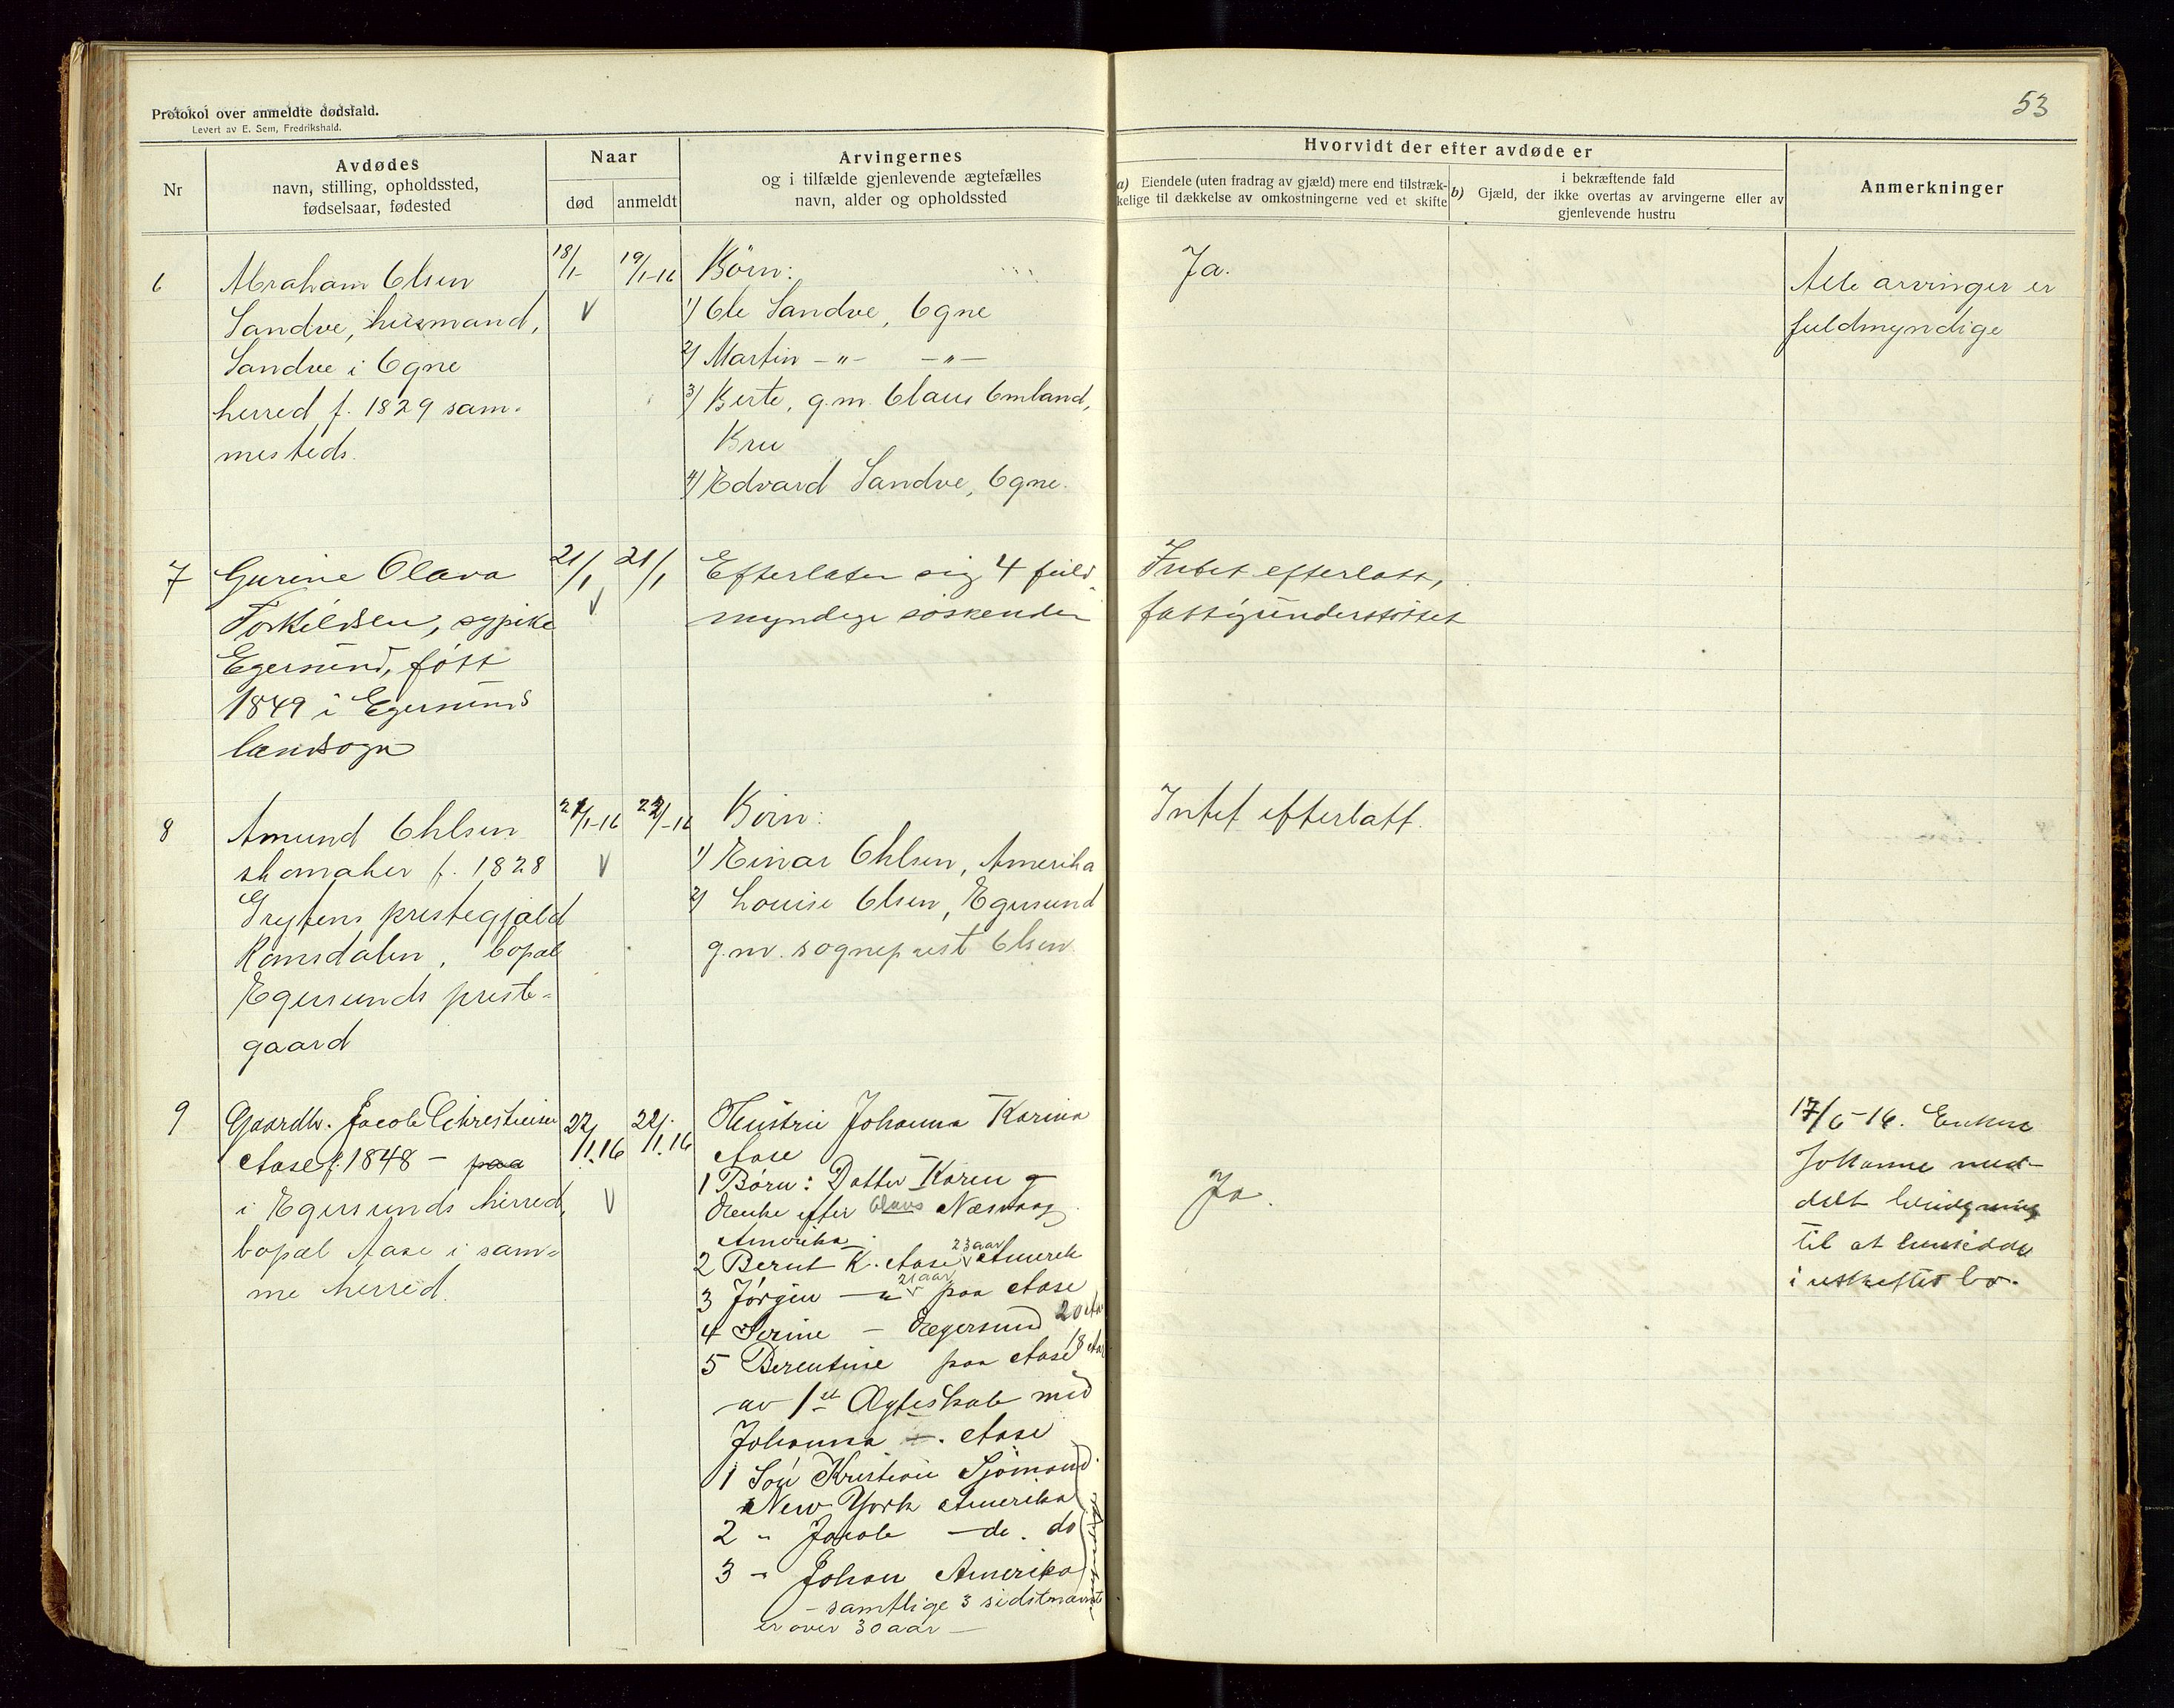 Protokol over anmeldte dødsfald.
Levert av E. Sem, Fredrikshald.
53
Nr
Avdødes
navn, stilling, opholdssted,
fødselsaar, fødested
Naar
død
anmeldt
Arvingernes
og i tilfælde gjenlevende ægtefælles
navn, alder og opholdssted
Hvorvidt der efter avdøde er
a) Eiendele (uten fradrag av gjæld) mere end tilstræk-
kelige til dækkelse av omkostningerne ved et skifte
i bekræftende fald
b) Gjæld, der ikke overtas av arvingerne eller av
gjenlevende hustru
Anmerkninger
6
Abraham Olsen
Sandve, husmand,
Sandve i Ogne
herred f. 1829 sam-
mesteds.
18/1-
V
19/1-16
Børn:
1) Ole Sandve, Ogne
2) Martin -"- -"-
3) Berte, g.m. Olaus Omland,
Bru
4) Edvard Sandve, Ogne.
Ja.
Alle arvinger er
fuldmyndige
7
Gurine Olava
Torkildsen, sypike
Egersund, født
1849 i Egersunds
landsogn
21/1
V
21/1
Efterlater sig 4 fuld
myndige søskende
Intet efterlatt,
fattigunderstøttet
8
Amund Ohlsen
skomaker f. 1828
Grytens prestegjæld
Romsdalen, bopæl
Egersunds preste-
gaard
21/1-16
V
22/1-16
Børn:
1) Einar Ohlsen, Amerika
2) Louise Olsen, Egersund
g.m. sogneprest Olsen.
Intet efterlatt.
9
Gaardbr. Jacob Christensen
Aase f. 1848 - paa
i Egersunds herred,
bopæl Aase i sam-
me herred.
22/1.16
V
22/1.16
Hustru Johanna Karina
Aase
1 Børn: Datter Karen g
Enke efter Olaus Næsvaag
Amerika.
2 Bernt K. Aase 23 aar Amerik
3 Jørgen -"- 21 aar paa Aase
4 Serine - Egersund 20 Aar
5 Berentine paa Aase 18 Aar
av 1st Ægteskab med
Johanna Aase
1 Søn Kristian Sjømand.
New York Amerika
2 " Jacob -do. do
3 " Johan Amerika
- samtlige 3 sidstnævnte
er over 30 aar -
Ja.
17/6-16. Enken
Johanne med-
delt bevidgning
til at hensidde
i uskiftet bo.